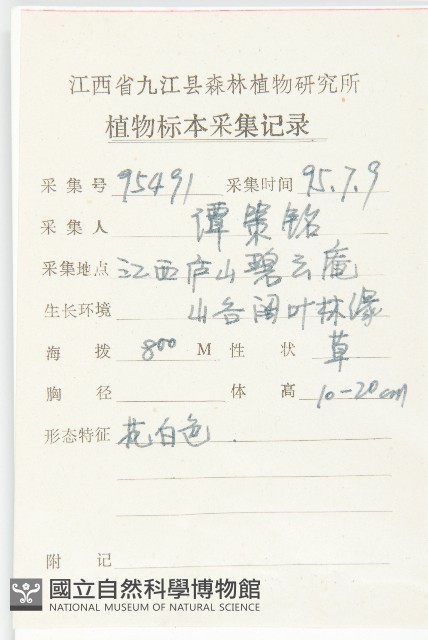 江西省九江县森林植物研究所
植物标本采集记录
采集号 95491 采集时间 95.7.9
采集人 谭策铭
采集地点 江西庐山碧云庵
生长环境 山谷阔叶林缘
海拨 800 M 性状 草
胸径 体高 10-20cm
形态特征 花白色.
附记
國立自然科學博物館
NATIONAL MUSEUM OF NATURAL SCIENCE